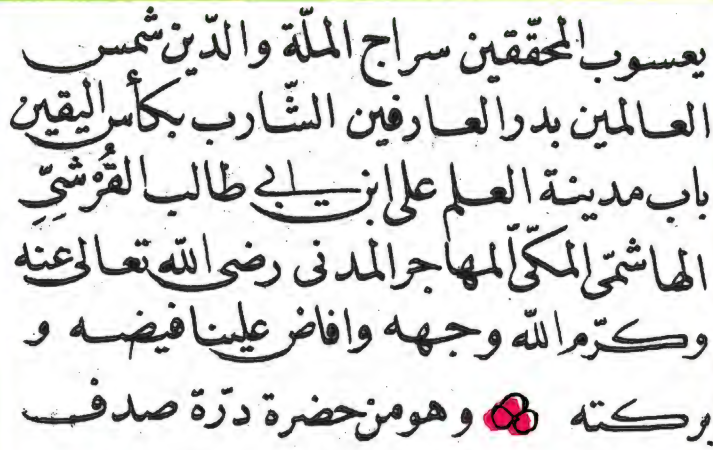 يعسوب المحقّقين سراج الملّة والدّين شمس
العالمين بدر العارفين الشّارب بكأس اليقين
باب مدينة العلم على ابن ابى طالب القُرْشىِّ
الهاشمّى المكّىّ المهاجر المدنى رضى الله تعالى عنه
وكرّم الله وجهه وافاض علينا فيضه و
بركته وهو من حضرة درّة صدف